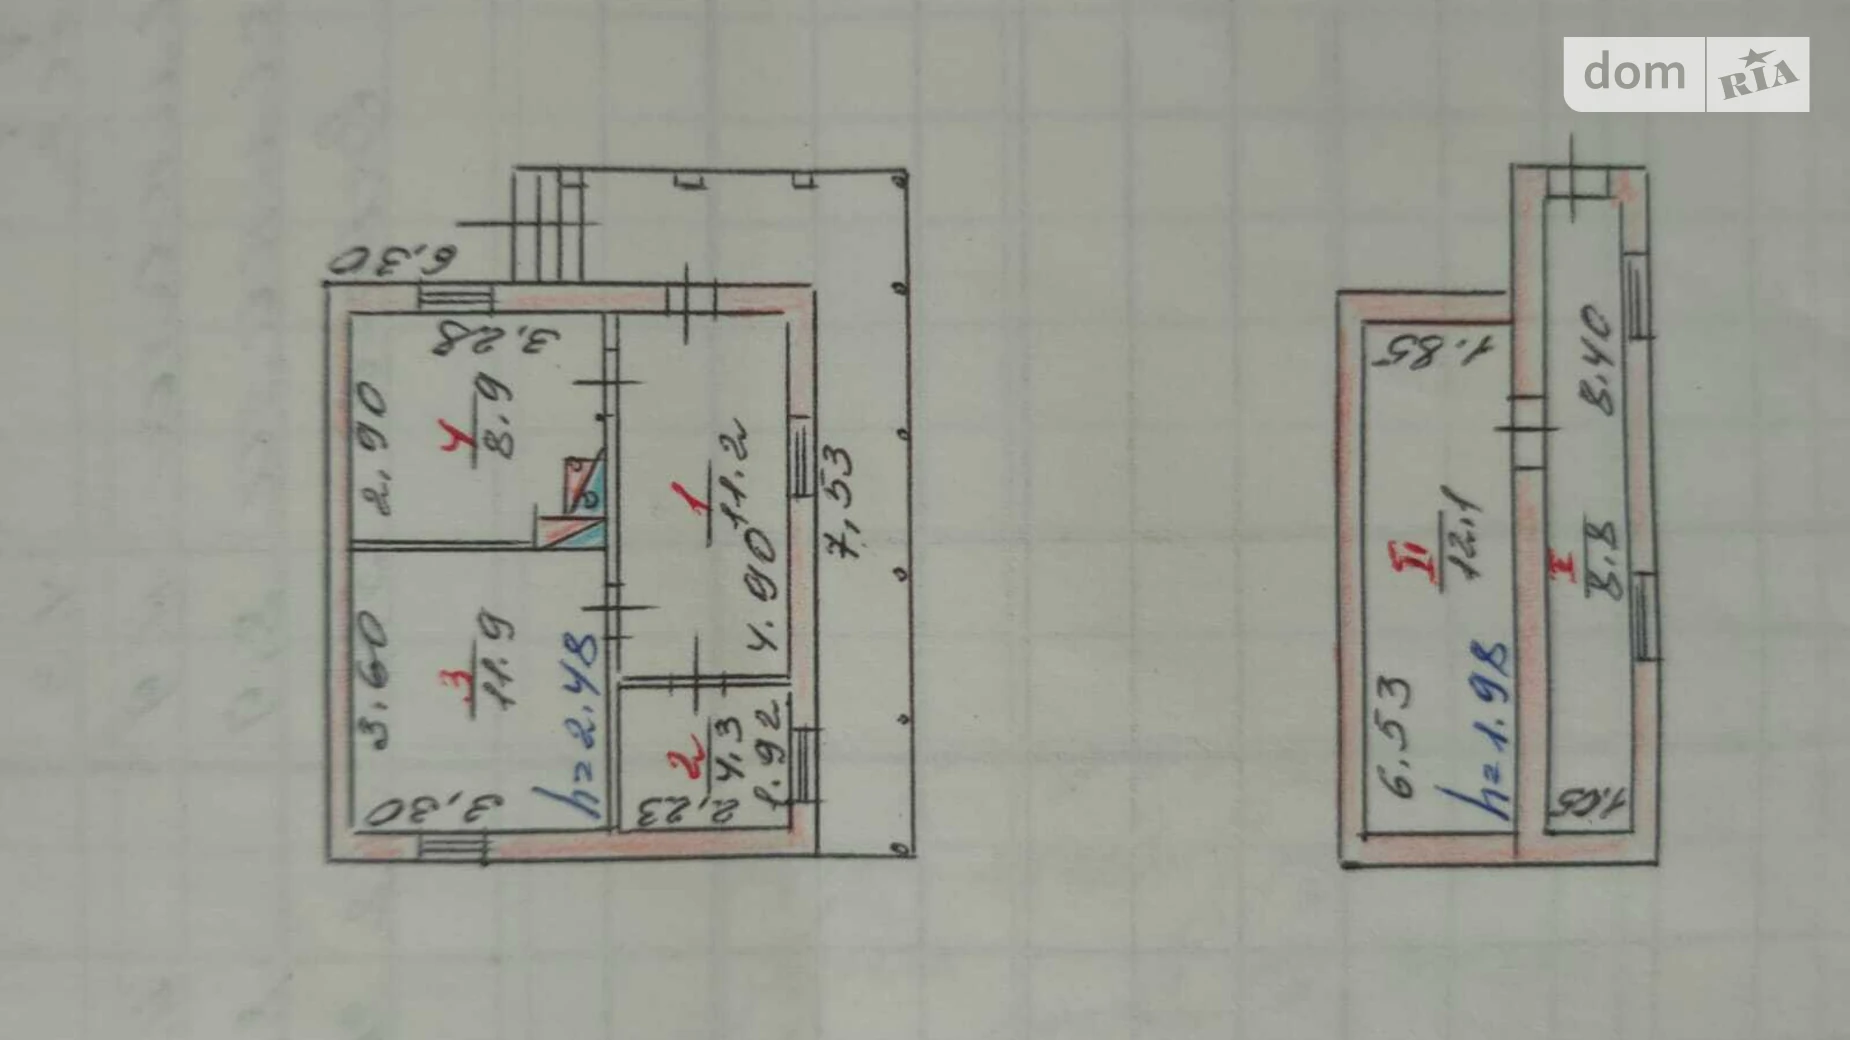 dom RIA
6,30
3,28
2,90
4
8.9
3.60
3
11.9
3,30
h=2.48
1
11.2
4.90
7,53
2
4.3
2,23
1.92
1.85
II
12.1
6.53
h=1.98
I
8.8
8.40
1.05